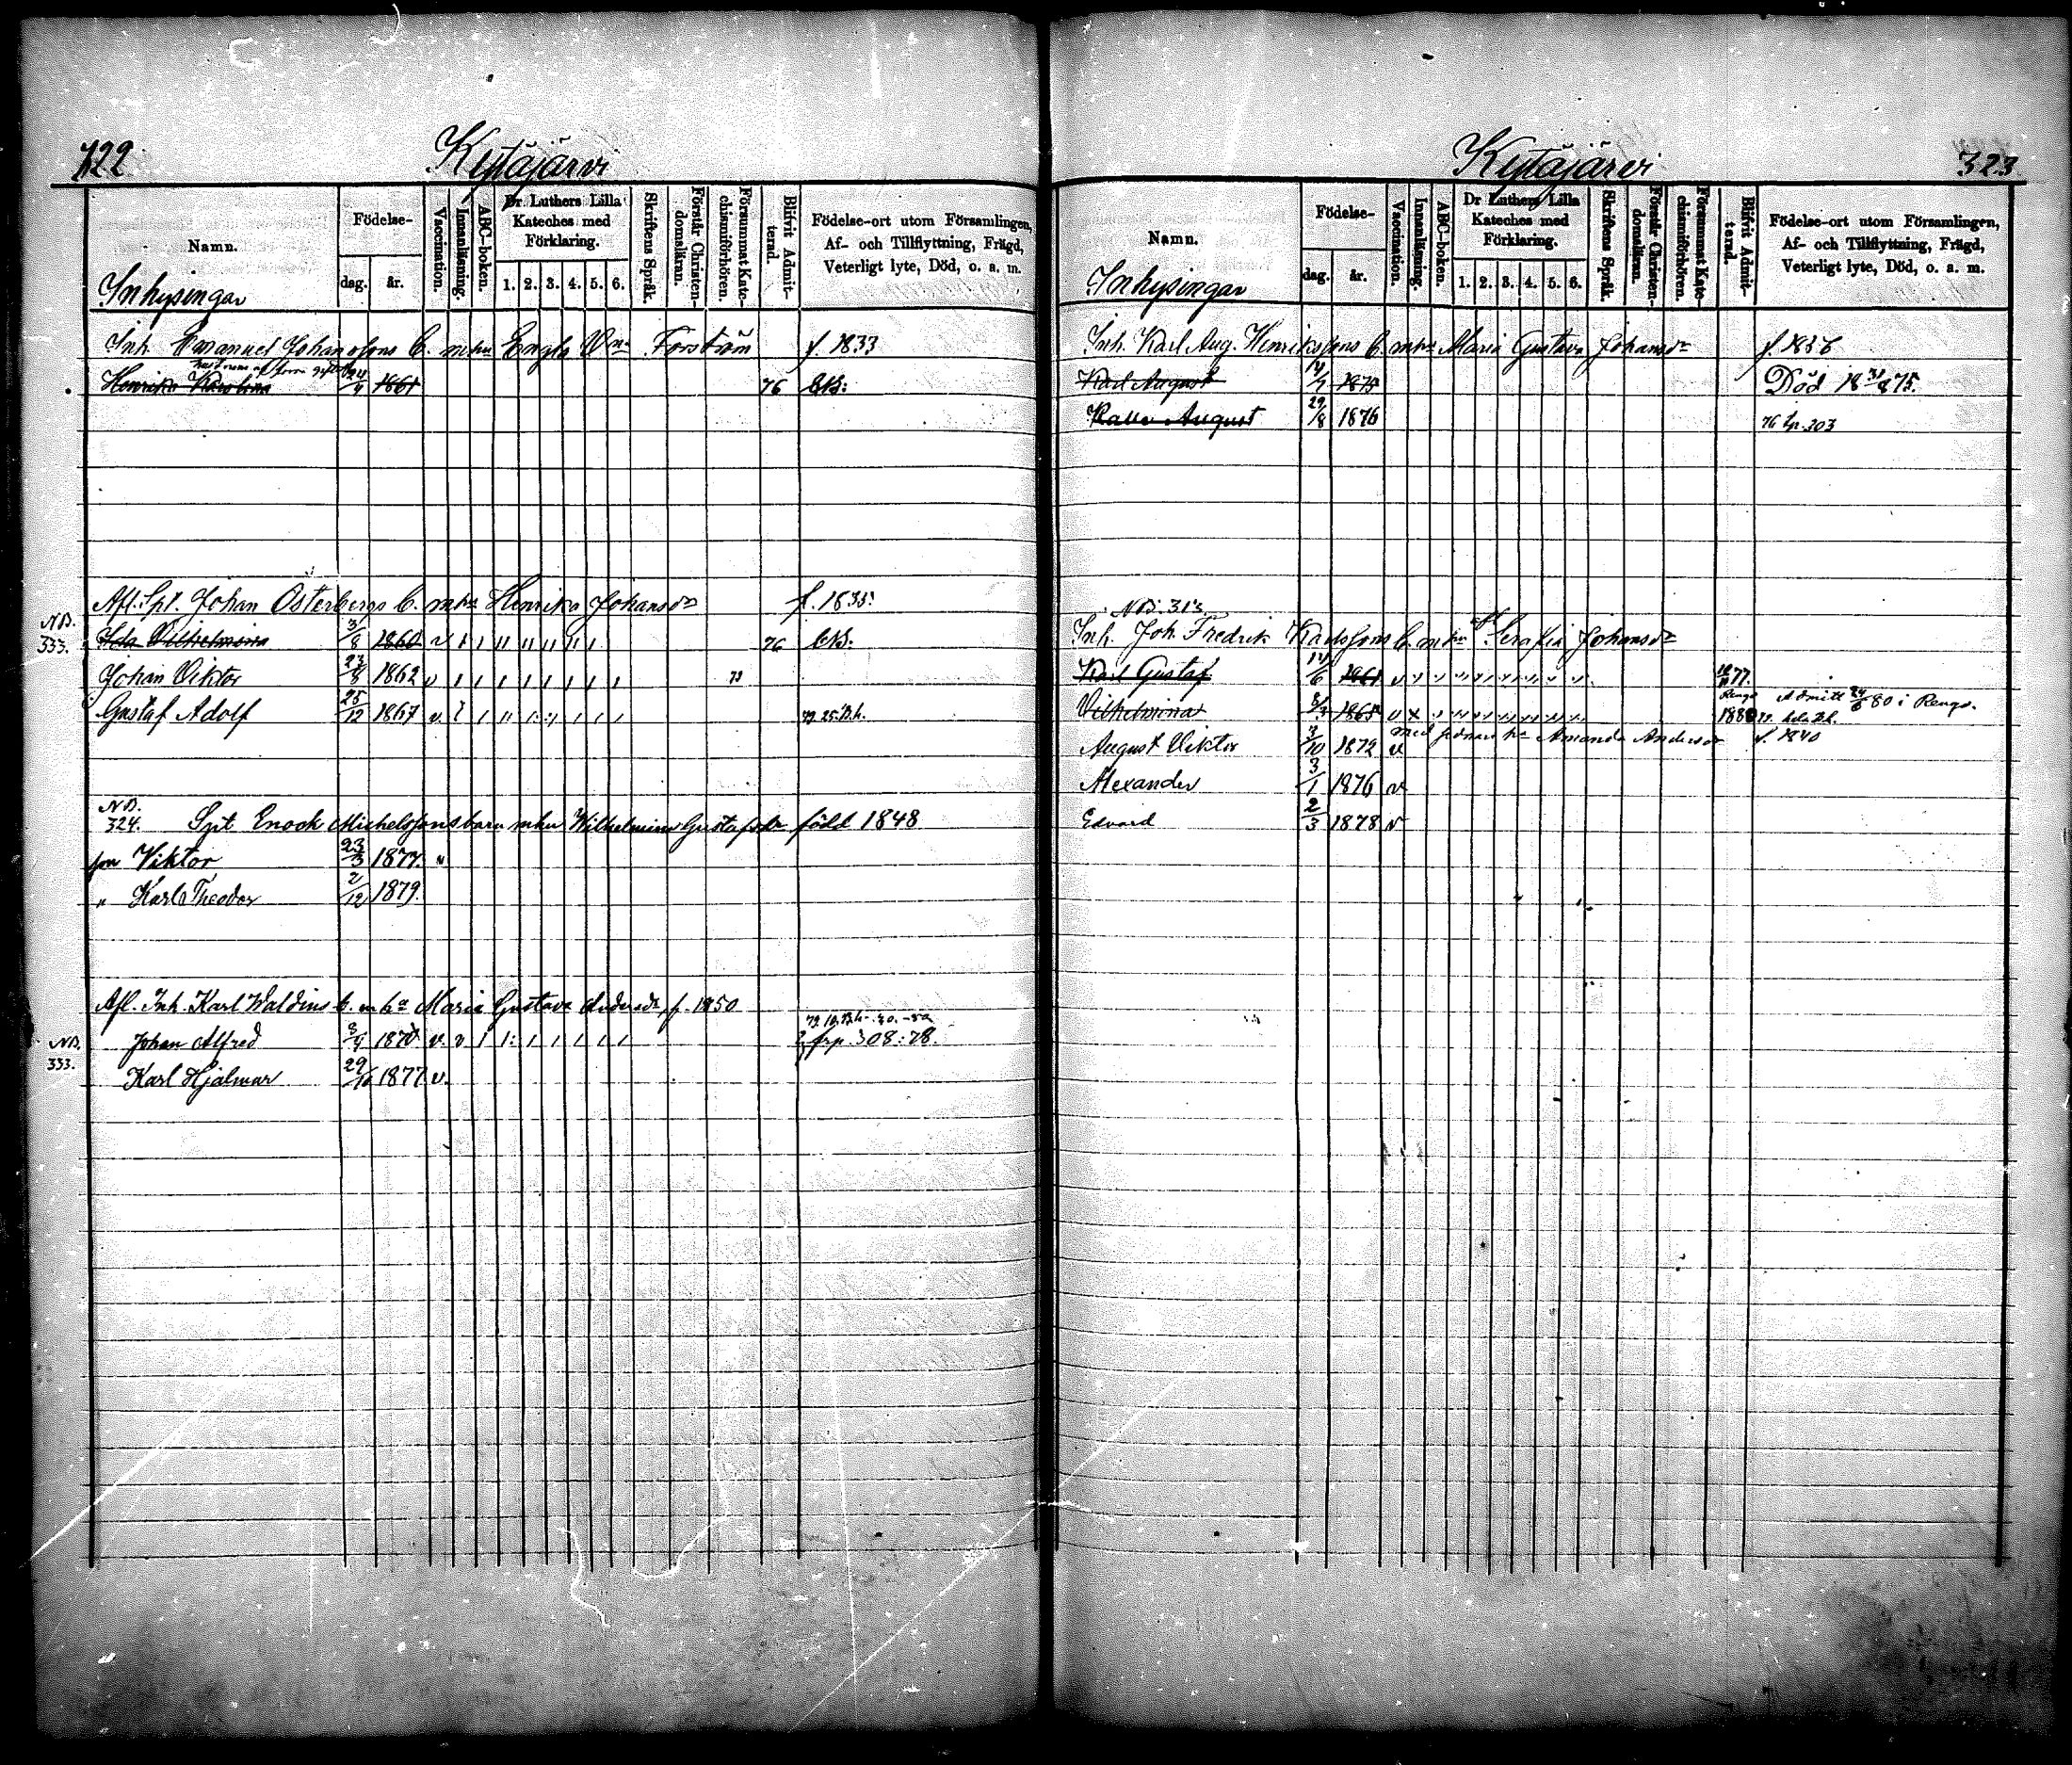 322. Kytäjärvi
Namn. Födelse- dag. år. Vaccination. Innanläsning. ABC-boken. Dr. Luthers Lilla Kateches med Förklaring. 1. 2. 3. 4. 5. 6. Skriftens Språk. Förstår Christendomsläran. Försummat Katechismiförhören. Blifvit Admitterad. Födelse-ort utom Församlingen, Af- och Tillflyttning, Frägd, Veterligt lyte, Död, o. a. m.
Inhysingar
Inh. Emanuel Johanssons b. m hu Engla Forström f. 1833
Henrika Karolina 24/4 1861 76
Afl. Spt. Johan Österbergs b. m hu Henrika Johansdr f. 1835
NB. 333. Ida Vilhelmina 31/8 1860 v 76
Johan Viktor 23/8 1862 v 73
Gustaf Adolf 25/12 1867 v
NB. 324. Spt Enock Michelssons barn m hu Wilhelmina Gustafsdr född 1848
son Viktor 23/3 1877. v
" Karl Theodor 2/12 1879.
Afl. Inh. Karl Waldins b. m ha Maria Gustava Andersdr, f. 1850
NB. 333. Johan Alfred 3/4 1870 v v frp. 308: 78.
Karl Hjalmar 29/10 1877 v.
Kytäjärvi 323
Namn. Födelse- dag. år. Vaccination. Innanläsning. ABC-boken. Dr Luthers Lilla Kateches med Förklaring. 1. 2. 3. 4. 5. 6. Skriftens Språk. Förstår Christendomsläran. Försummat Katechismiförhören. Blifvit Admitterad. Födelse-ort utom Församlingen, Af- och Tillflyttning, Frägd, Veterligt lyte, Död, o. a. m.
Inhysingar
Inh. Karl Aug. Henrikssons b. m hu Maria Gustava Johansdr f. 1836
Karl August 14/7 1875 Död 18 31/8 75.
Kalle August 29/8 1876 76 sp. 303
NB. 313.
Inh. Joh. Fredrik Karlssons b. m hu Serafia Johansdr
Karl Gustaf 14/6 1861 v 77.
Vilhelmina 8/3 1865 v x Rengo 1880 Admitt 24/6 80 i Rengo.
August Viktor 3/10 1872 v med sednare hu Amanda Andersdr f. 1840
Alexander 3/1 1876 v
Edvard 2/3 1878 v